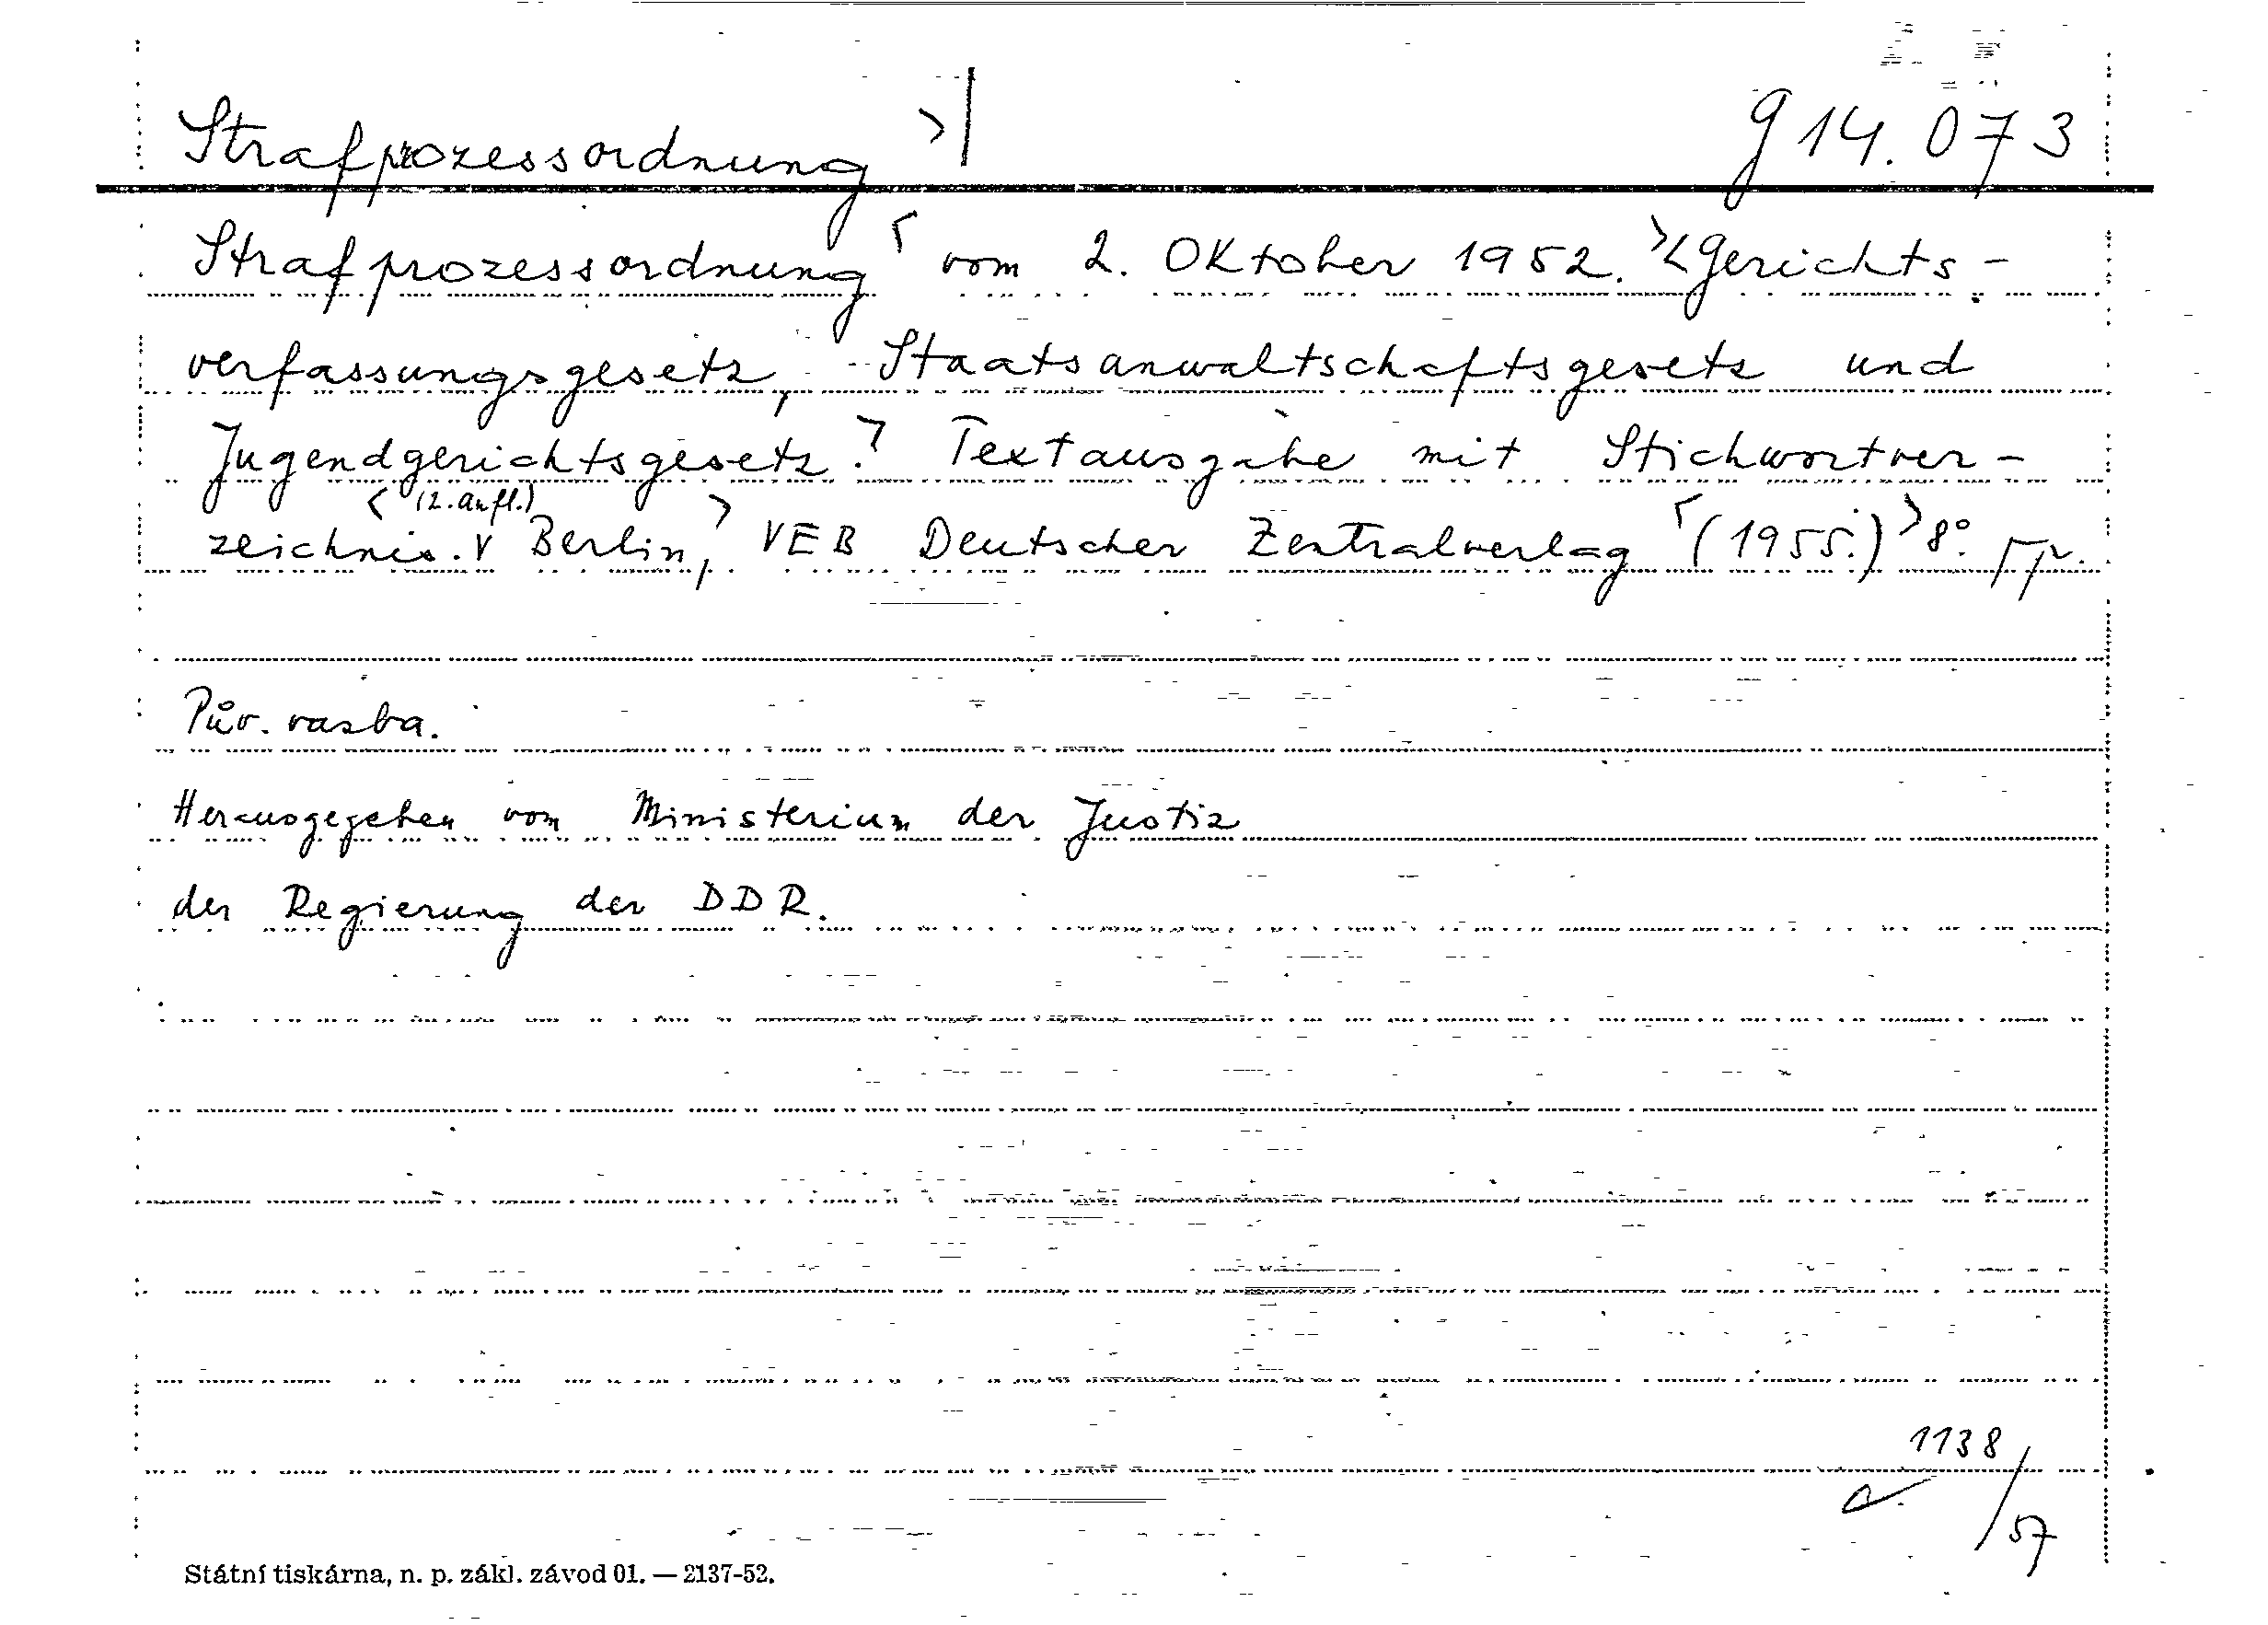 Strafprozessordnung g 14.073
Strafprozessordnung vom 2. Oktober 1952. Gerichts-
verfassungsgesetz, Staatsanwaltschaftsgesetz und
Jugendgerichtsgesetz. Textausgabe mit Stichwortver-
(2. Aufl.)
zeichnis. Berlin, VEB Deutscher Zentralverlag (1955.) 8°.
Pův. vazba.
Herausgegeben vom Ministerium der Justiz
der Regierung der DDR.
1138/57
Státní tiskárna, n. p. zákl. závod 01. — 2137-52.